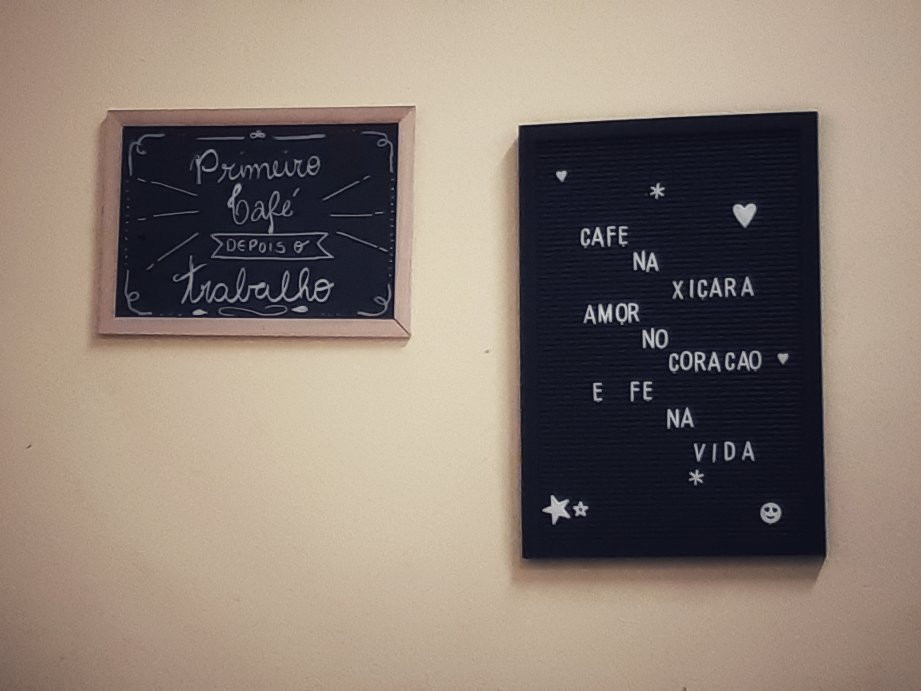 Primeiro
Café
DEPOIS O
trabalho
CAFE
NA
XICARA
AMOR
NO
CORACAO
E FE
NA
VIDA